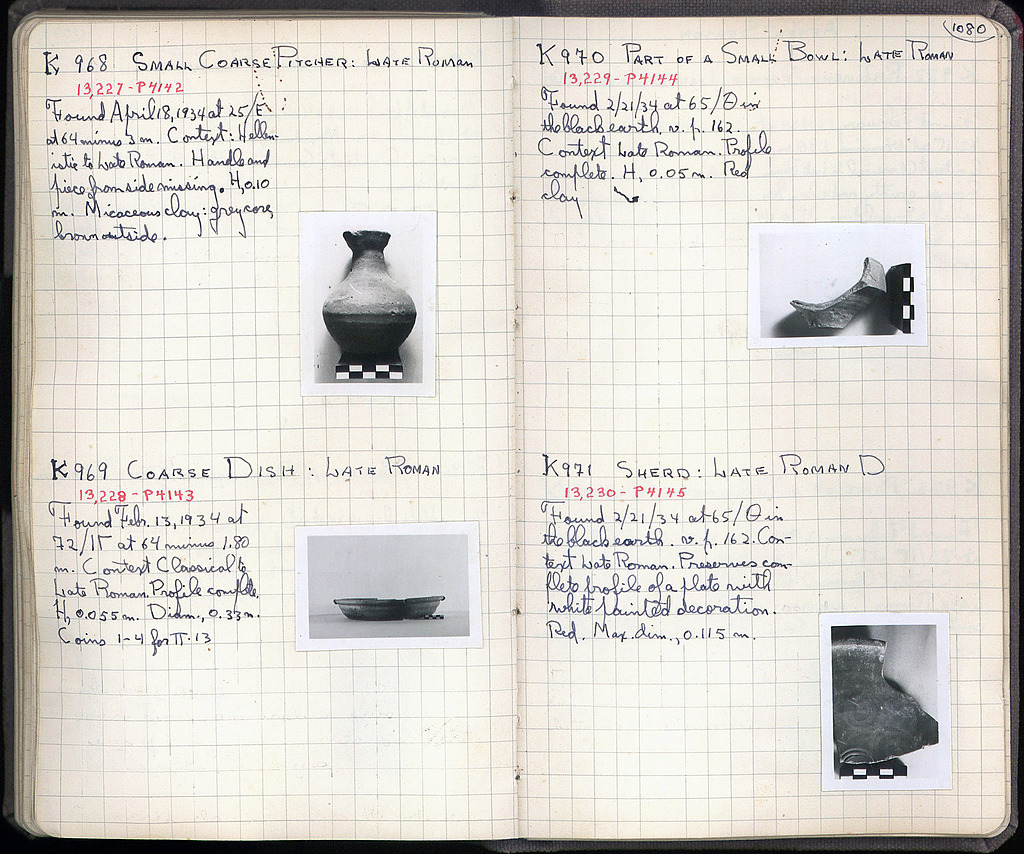 K 968 SMALL COARSE PITCHER: LATE ROMAN
13,227-P4142
Found April 18, 1934 at 25/E
at 64 minus 3 m. Context: Hellen-
istic to Late Roman. Handle and
piece from side missing. H, 0.10
m. Micaceous clay: grey core,
brown outside.
K 969 COARSE DISH: LATE ROMAN
13,228-P4143
Found Feb. 13, 1934 at
72/ΙΓ at 64 minus 1.80
m. Context Classical to
Late Roman. Profile complete.
H, 0.055 m. Diam., 0.33 m.
Coins 1-4 for Π·13
1080
K 970 PART OF A SMALL BOWL: LATE ROMAN
13,229-P4144
Found 2/21/34 at 65/Θ in
the black earth. v. p. 162.
Context Late Roman. Profile
complete. H, 0.05 m. Red
clay
K 971 SHERD: LATE ROMAN D
13,230-P4145
Found 2/21/34 at 65/Θ in
the black earth. v. p. 162. Con-
text Late Roman. Preserves com-
plete profile of a plate with
white painted decoration.
Red. Max. dim., 0.115 m.